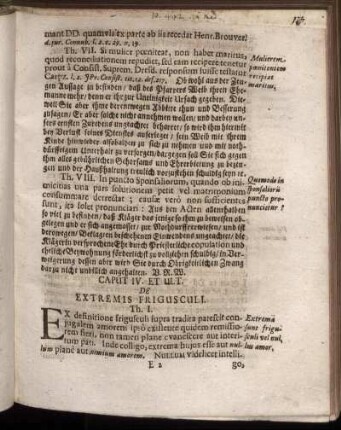 mant DD. quamvis ex parte ab iis recedat Henr. Brouver.
d. jur. Connub. l. 2. c. 29. n. 19.
Th. VII. Si mulier pœniteat, non habet maritus,
quod reconciliationem repudiet, sed eam recipere tenetur
prout à Consist. Suprem. Dresd. responsum fuisse testatur
Carpz. l. 2. JPr. Consist. tit. 12. def. 217. Ob wohl aus der Zeu-
gen Aussage zu befinden / daß des Pfarrers Weib ihren Ehe-
manne mehr / denn er ihr zur Uneinigkeit Ursach gegeben. Die-
weil Sie aber ihme deretwegen Abbitte thun und Besserung
zusagen / Er aber solche nicht annehmen wollen / und darbey an-
ders ernsten Zuredens ungeachtet beharret / so wird ihm hiermit
bey Verlust seines Dienstes auferleget / sein Weib mit ihrem
Kinde hinwieder alsobalden zu sich zu nehmen und mit noth-
dürfftigem Unterhalt zu versorgen / dargegen soll Sie sich gegen
ihm alles gebührlichen Gehorsams und Ehrerbietung zu bezei-
gen und der Haushaltung treulich vorzustehen schuldig seyn rc.
Th. VIII. In puncto Sponsaliorum, quando ob ini-
micitias una pars solutionem petit vel matrimonium
consummare detrectat; causæ verò non sufficientes
sunt, ita solet pronunciari: Aus den Acten allenthalben
so viel zu befinden / daß Kläger das jenige so ihm zu beweisen ob-
gelegen und er sich angemasset / zur Nothdurfft erwiesen / und ist
derowegen Beklagte beschehenes Einwendens ungeachtet / die
Klägerin versprochene Ehe durch Priesterliche copulation und
eheliche Beywohnung förderlichst zu vollziehen schuldig / in Ver-
weigerung dessen aber wird Sie durch Obrigkeitlichen Zwang
darzu nicht unbillich angehalten. V. R. W.
CAPUT IV. ET ULT.
DE
EXTREMIS FRIGUSCULI.
Th. I.
EX definitione frigusculi supra tradita patescit con-
jugalem amorem ipsô existente quidem remissio-
rem fieri, non tamen planè evanescere aut interi-
tum pati. Inde colligo, extrema hujus esse aut nul-
lum planè aut nimium amorem. NULLUM videlicet intelli-
E 2 go,
Mulierem
pœnitentem
recipiat
maritus,
Quomodo in
sponsaliorũ
puncto pro-
nunciatur?
Extrema
sunt frigu-
sculi vel nul-
lus amor,